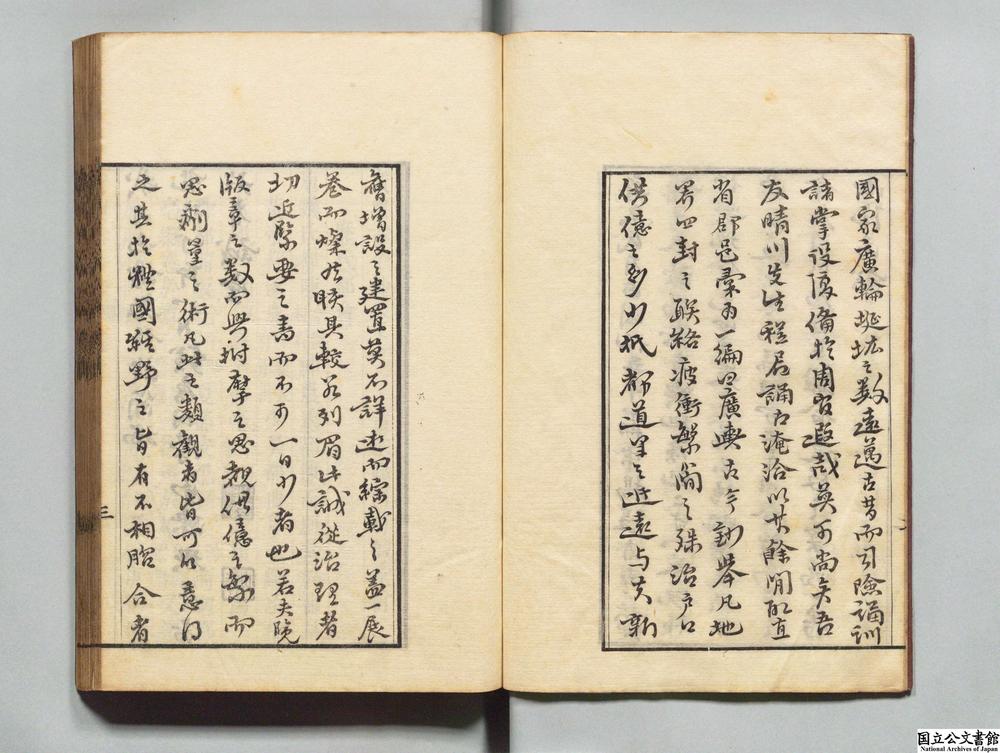 國家廣輪埏垓之数遠邁古昔而司險誦訓
諸掌設復備於周官遐哉莫可尚矣吾
友晴川先生程君誦古淹洽以其餘閒取直
省郡邑彙为一編曰廣輿古今鈔举凡地
界四封之联絡疲衝繁簡之殊治户口
供億之多少抵都道里之近遠与其新
舊增設之建置莫不詳述而綜載之盖一展
卷而燦然眹具較若列眉此誠從治理者
切近緊要之書而不可一日少者也若夫覽
版章之数而興拊摩之思觀供億之繁而
思劑量之術凡此之類觀者皆可以意得
之其於體國經野之旨有不相脗合者
三
国立公文書館
National Archives of Japan